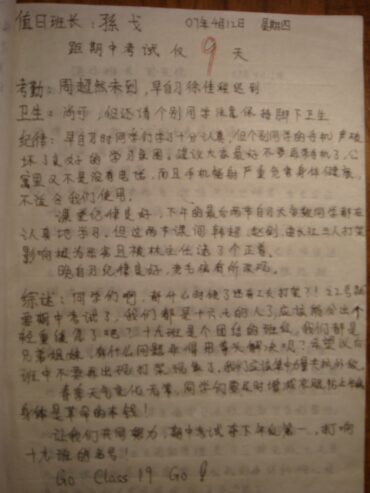 值日班长：孫戈 07年4月12日 星期四
距期中考试仅9天
考勤：周超然未到，早自习徐佳程迟到
卫生：尚可，但还请个别同学注意保持脚下卫生
纪律：早自习时同学们学习十分认真，但个别同学的手机声破
坏了良好的学习氛围，建议大家最好不要再带手机了，公
寓里又不是没有电话，而且手机辐射严重危害身体健康，
不适合我们使用。
课堂纪律良好，下午的最后两节自习大多数同学都在
认真地学习，但这两节课间韩超、赵钊、
影响极为恶劣且被林主任逮了个正着。
晚自习纪律良好，
综述：同学们啊，都什么时候了还有工夫打架？！22号就
要期中考试了，我们都是十六七的人了，应该能分出个
轻重缓急了吧？十九班是个团结的班级，我们都是
兄弟姐妹，有什么问题非得用拳头解决呢？希望以后
班中不要再出现打架现象了，我们应该集中力量共抗外敌
春季天气变化无常，同学们要及时增减衣服
身体是革命的本钱！
让我们共同努力，期中考试夺下年级第一，打响
十九班的名号！
Go Class 19 Go！